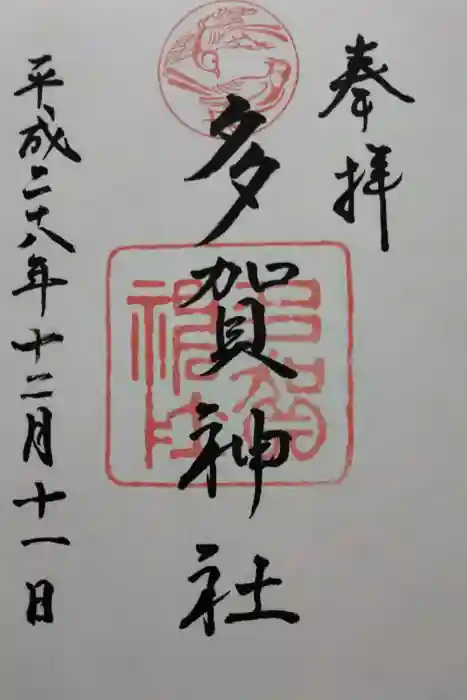 奉拝
多賀神社
多賀神社
平成二十八年十二月十一日